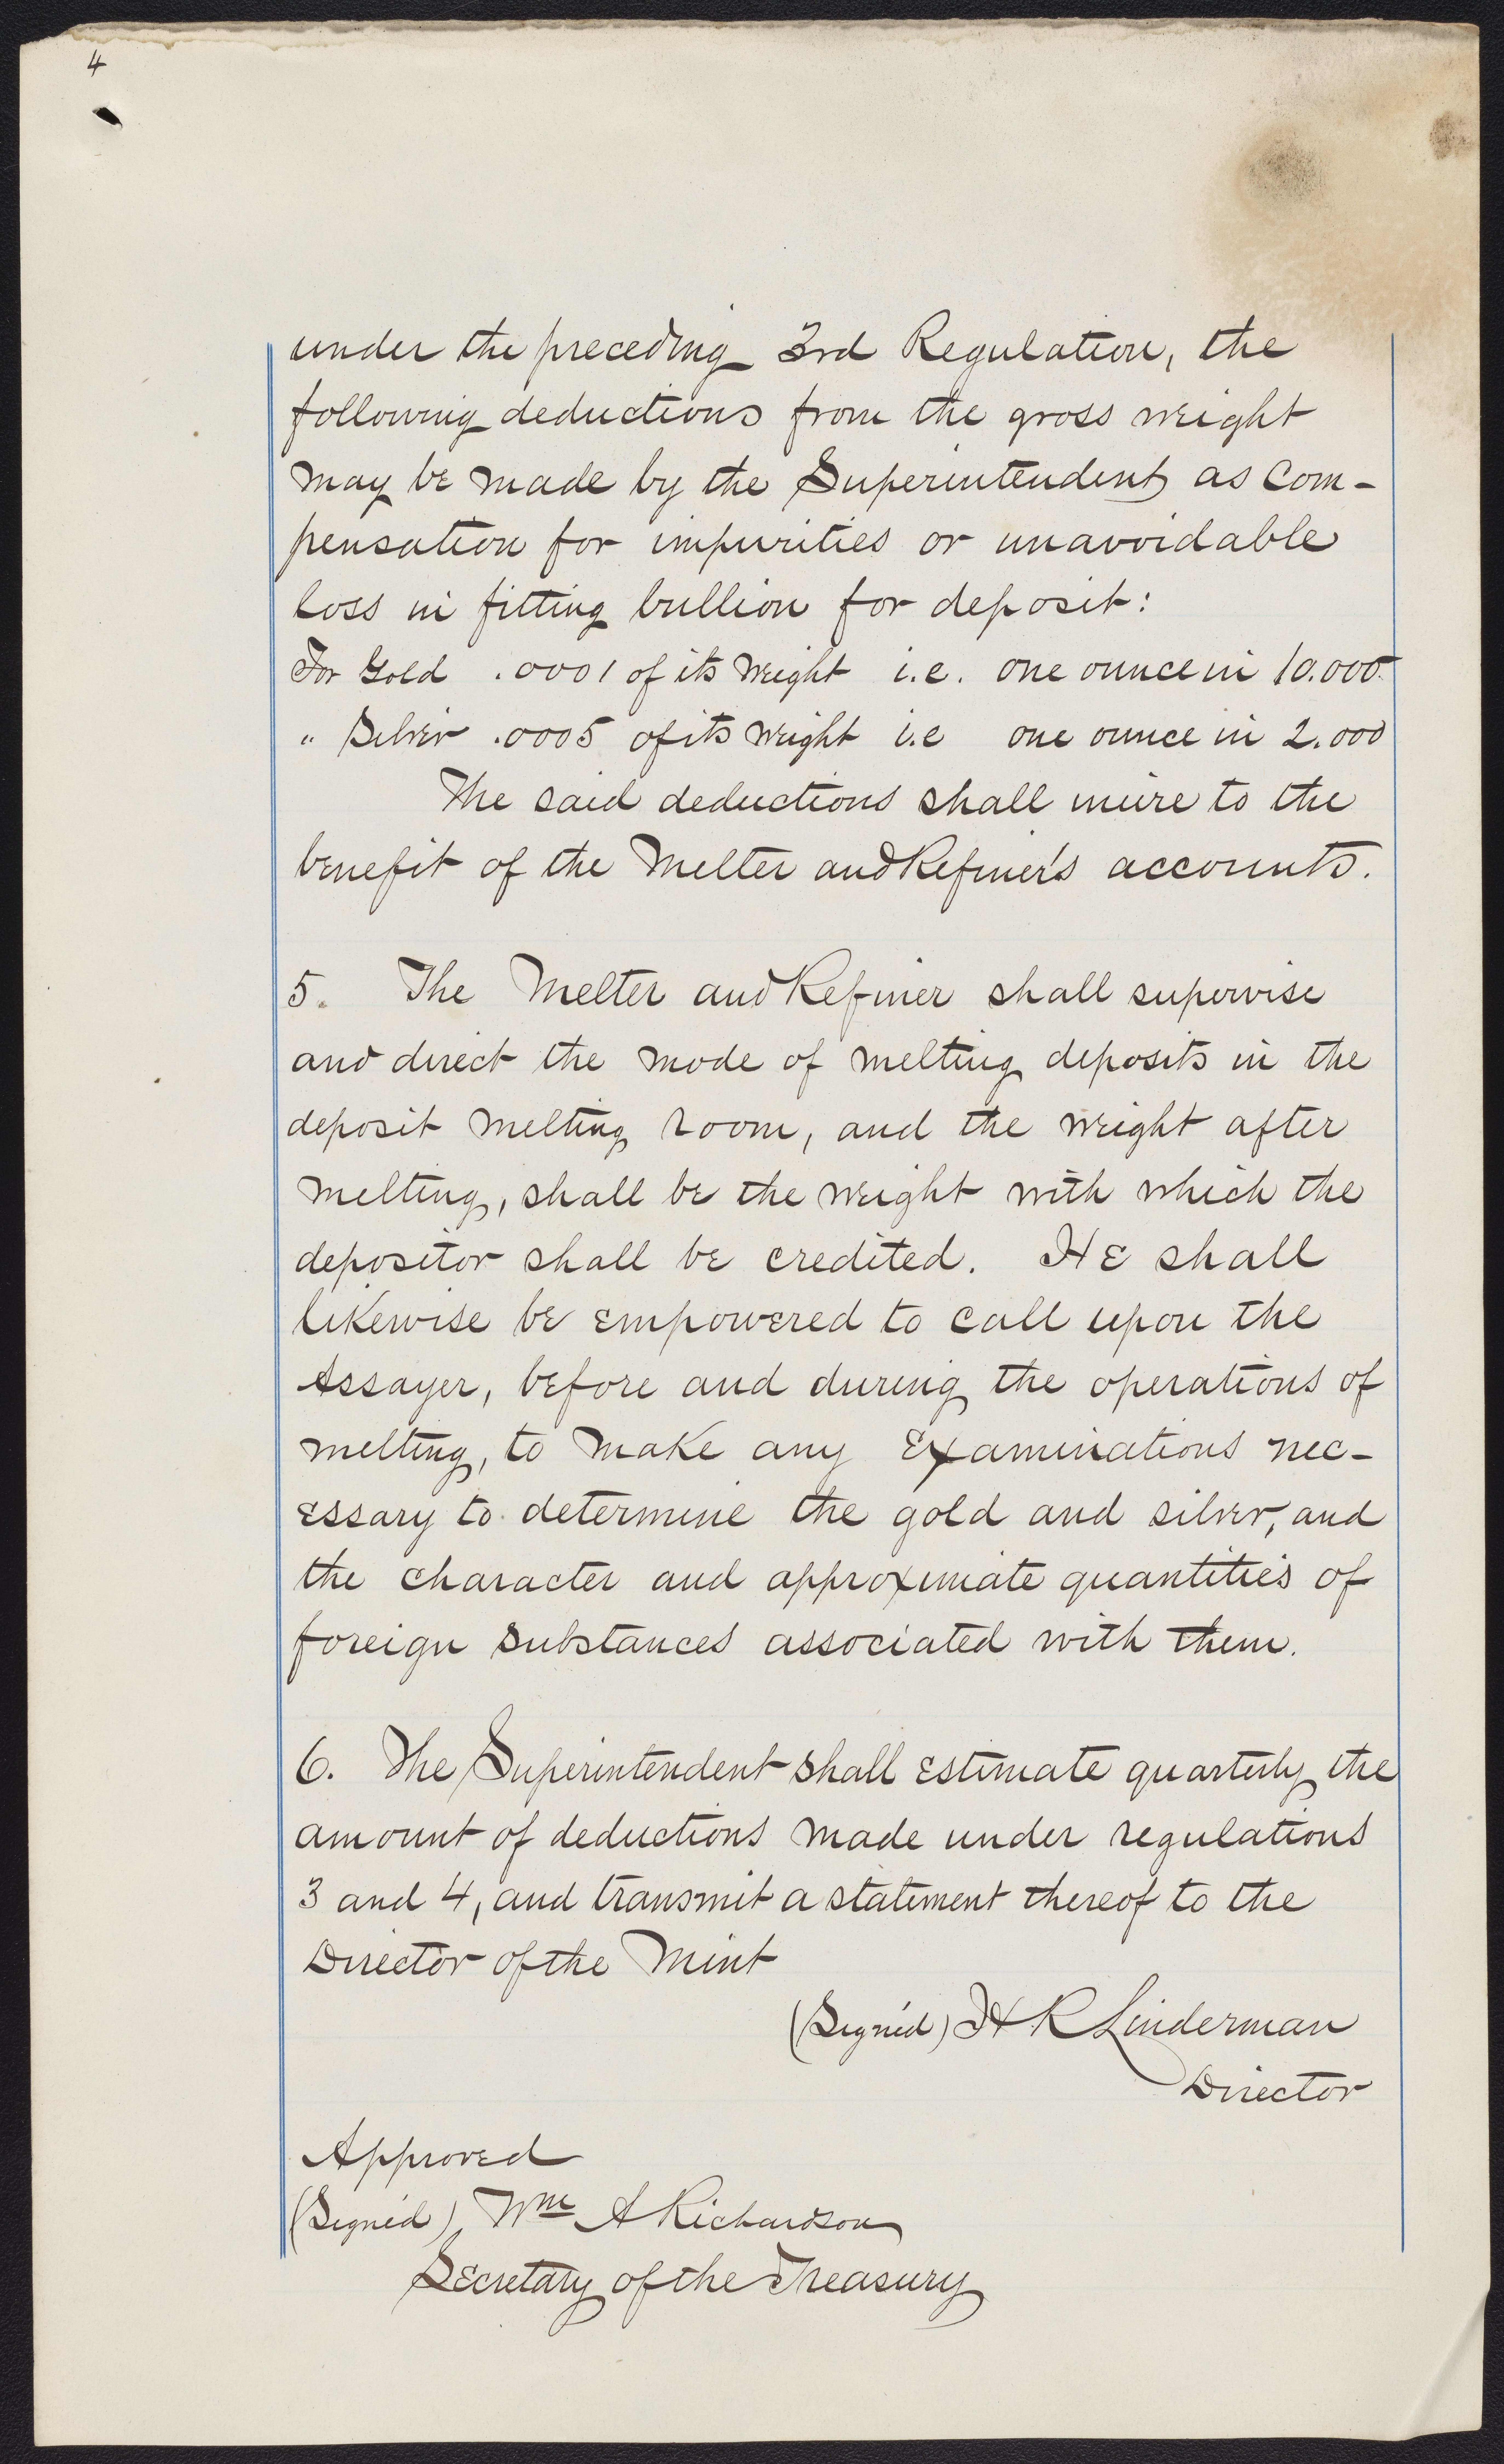 4
under the preceding 3rd Regulation, the
following deductions from the gross weight
may be made by the Superintendent as Com-
pensation for impurities or unavoidable
loss in fitting bullion for deposit:
For Gold .0001 of its weight i.e. one ounce in 10.000.
" Silver .0005 of its weight i.e one ounce in 2.000
The said deductions shall inure to the
benefit of the Melter and Refiner's accounts.
5. The Melter and Refiner shall supervise
and direct the mode of melting deposits in the
deposit melting room, and the weight after
melting, shall be the weight with which the
depositor shall be credited. He shall
likewise be empowered to call upon the
Assayer, before and during the operations of
melting, to make any Examinations nec-
essary to determine the gold and silver, and
the character and approximate quantities of
foreign substances associated with them.
6. The Superintendent shall estimate quarterly the
amount of deductions made under regulations
3 and 4, and transmit a statement thereof to the
Director of the Mint
(Signed) H R Linderman
Director
Approved
(Signed) Wm A Richardson
Secretary of the Treasury